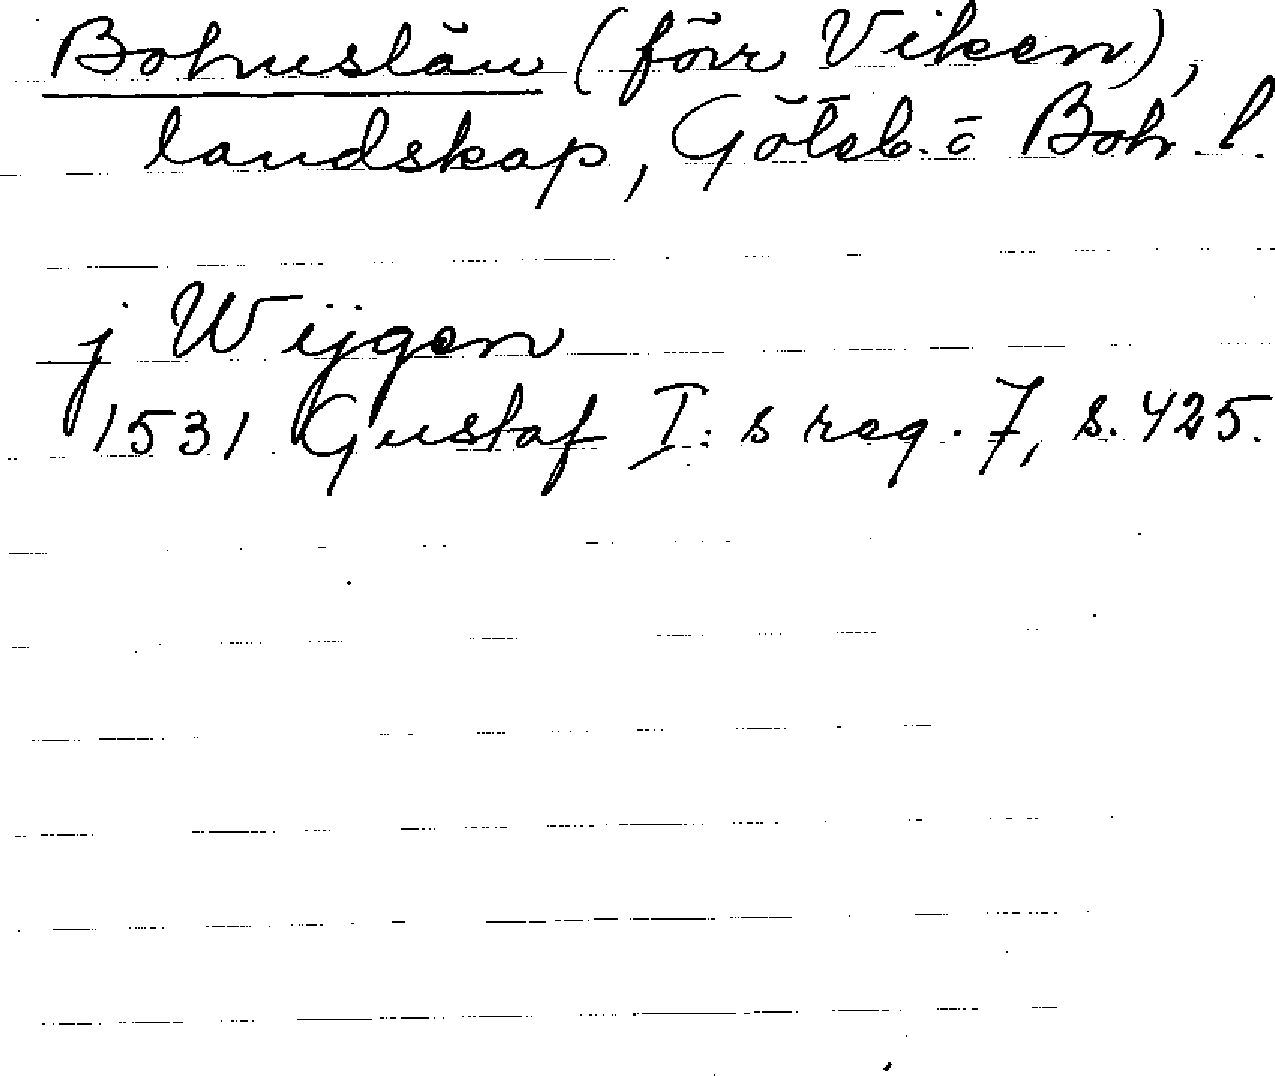 Bohuslän (förr Viken),
landskap, Göteb. o Boh. l.
j Wijgen
1531 Gustaf I:s reg. 7, s. 425.